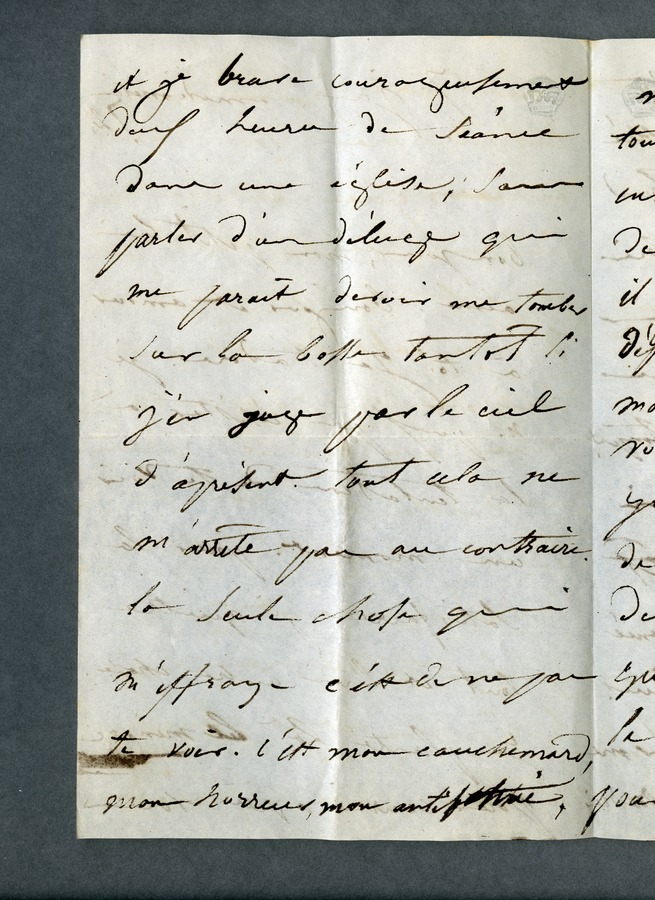 et je brave courageusement
deux heures de séance
dans une église, sans
parler d'un déluge qui
me parait devoir me tomber
sur la bosse tantot si
j'en juge par le ciel
d'aprésent. tout cela ne
m'arrête pas au contraire.
la seule chose qui
m'effraye c'est de ne pas
te voir. c'est mon cauchemard,
mon horreur, mon
tou
de
il
ma
vo
de
de
le